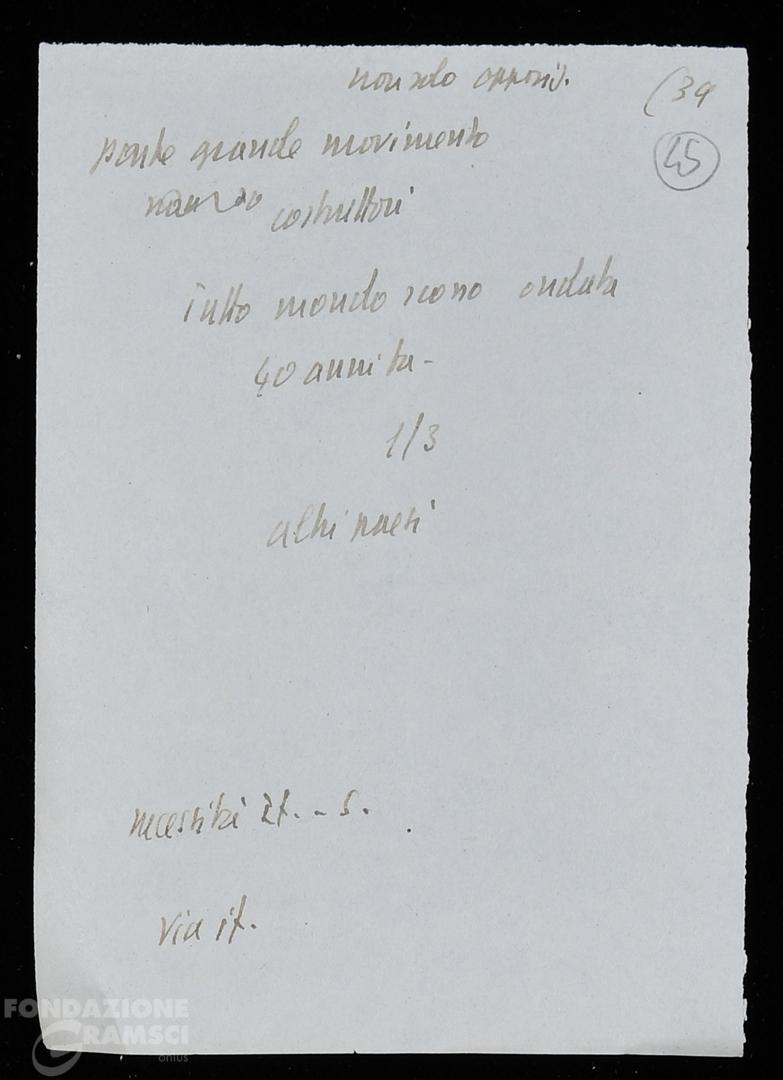 non solo opposiz. (39
45
parte grande movimento
costruttori
Tutto mondo scosso ondata
40 anni fa -
1/3
altri paesi
necessità It. - S.
Via it.
FONDAZIONE
GRAMSCI
onlus